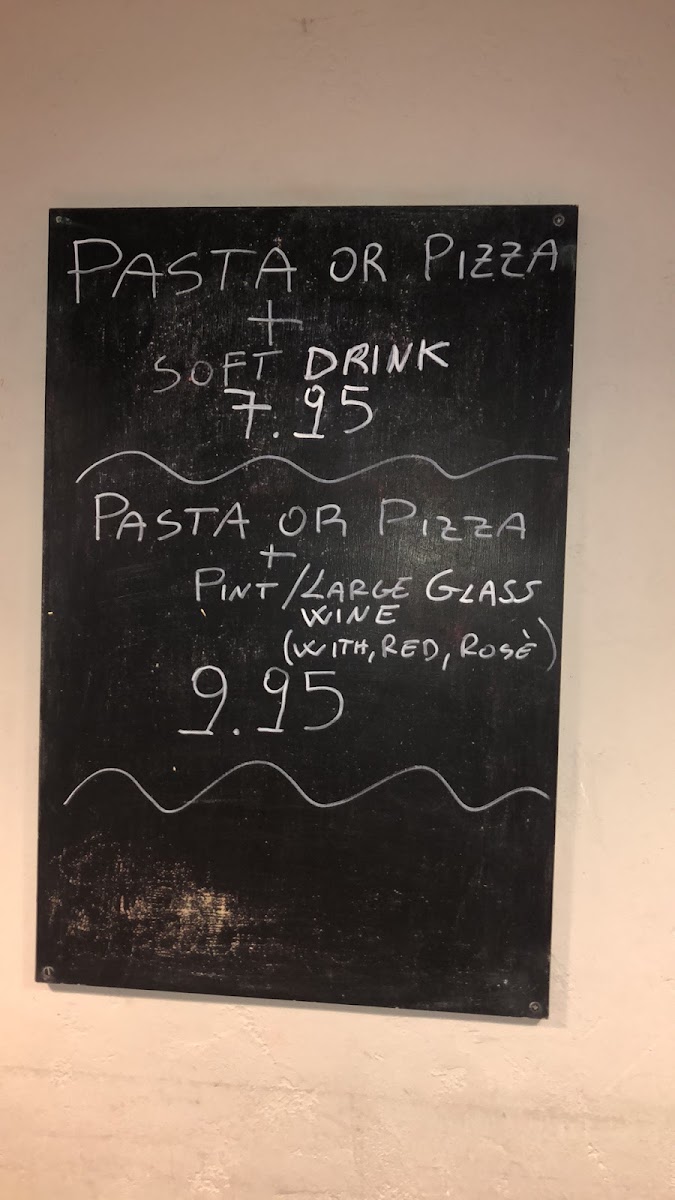 PASTA OR PIZZA
+
SOFT DRINK
7.95
PASTA OR PIZZA
+
PINT/LARGE GLASS
WINE
(WITH, RED, ROSÈ)
9.95